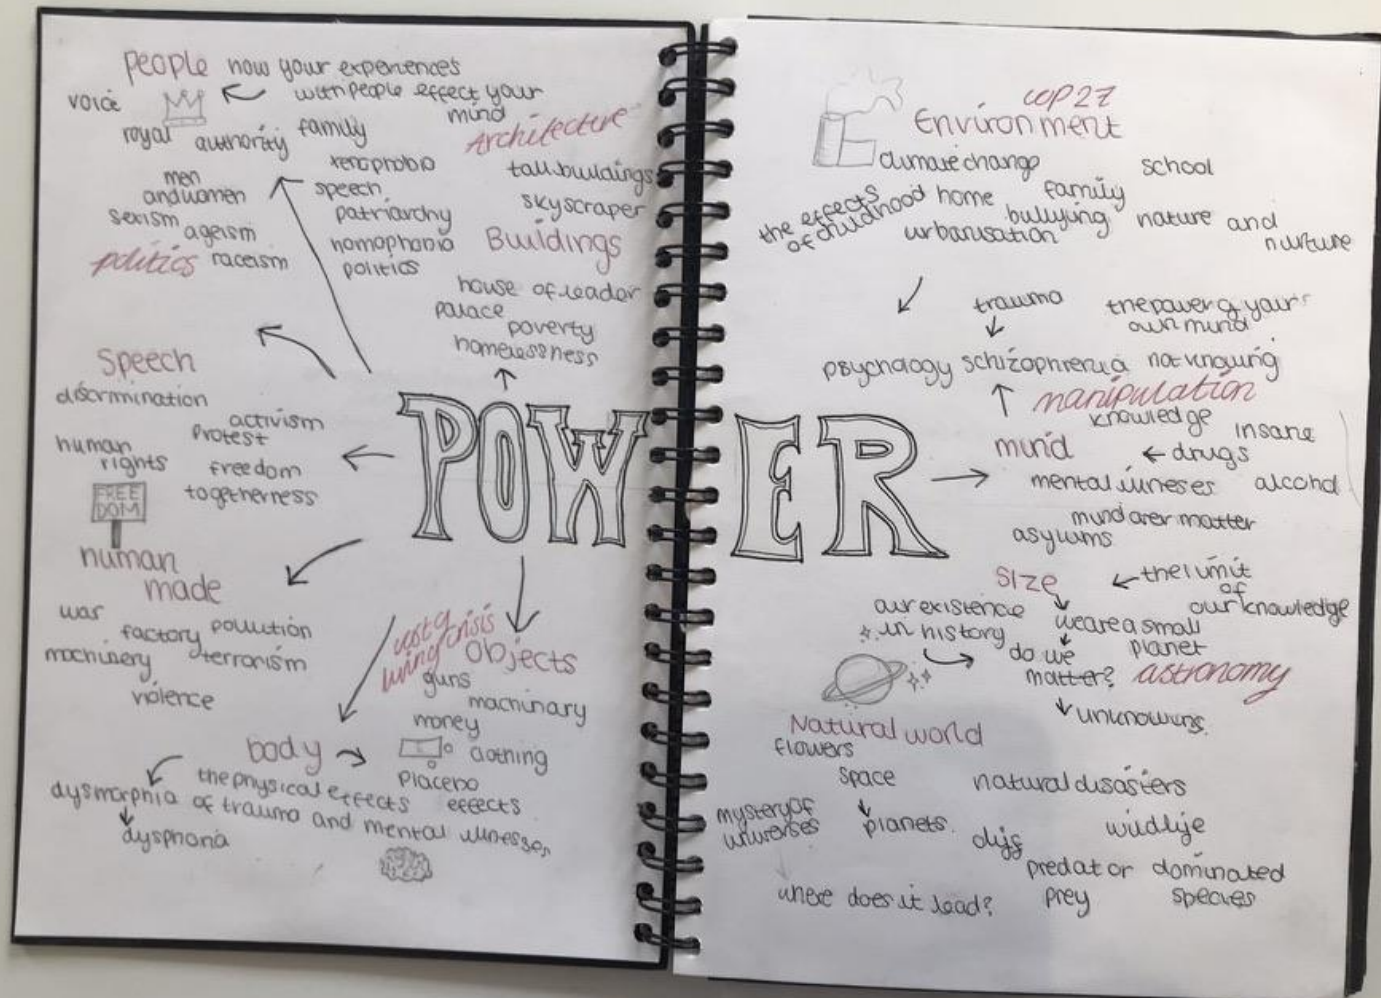 people how your experiences
with people effect your
mind
voice
royal authority family
Architecture
xenophobia
tall buildings
men
and women
speech
skyscraper
sexism ageism
patriarchy
homophobia
Buildings
politics raceism
politics
house of leader
palace
poverty
homelessness
Speech
discrimination
activism
protest
human
rights
freedom
togetherness
FREE
DOM
human
made
war
factory pollution
machinery terrorism
violence
cost of
living crisis
objects
guns
machinary
money
clothing
body
placebo
effects
the physical effects
of trauma and mental illnesses
dysmorphia
dysphoria
POWER
COP27
Environment
climate change
school
the effects
of childhood
home
family
bullying
urbanisation
nature and
nurture
trauma
the power of your
own mind
psychology schizophrenia not knowing
manipulation
knowledge
insane
mind
drugs
mental illneses alcohol
mind over matter
asylums
size
the limit
of
our knowledge
our existence
in history
we are a small
planet
do we
matter?
astronomy
unknowns
Natural world
flowers
space
natural disasters
mystery of
universes
planets
wildlife
predator dominated
prey species
where does it lead?